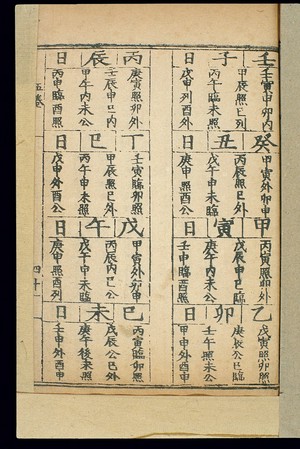 壬子日
壬寅申卯内
甲辰照巳列
丙午臨未照
戊申列酉外
癸丑日
甲寅外卯申
甲寅日
丙寅照卯照
戊辰申巳臨
庚午臨未外
壬申臨酉照
乙卯日
戊寅照卯列
庚辰公巳臨
壬午照未公
甲申申酉外
丙辰日
庚寅照卯外
壬辰申巳内
甲午内未公
丙申臨酉照
丁巳日
壬寅臨卯照
甲辰照巳外
丙午申未照
戊申外酉公
戊午日
甲寅外卯申
丙辰内巳公
戊午申未臨
庚申照酉列
己未日
丙寅臨卯照
戊辰公巳外
庚午後未照
壬申外酉申
四十一